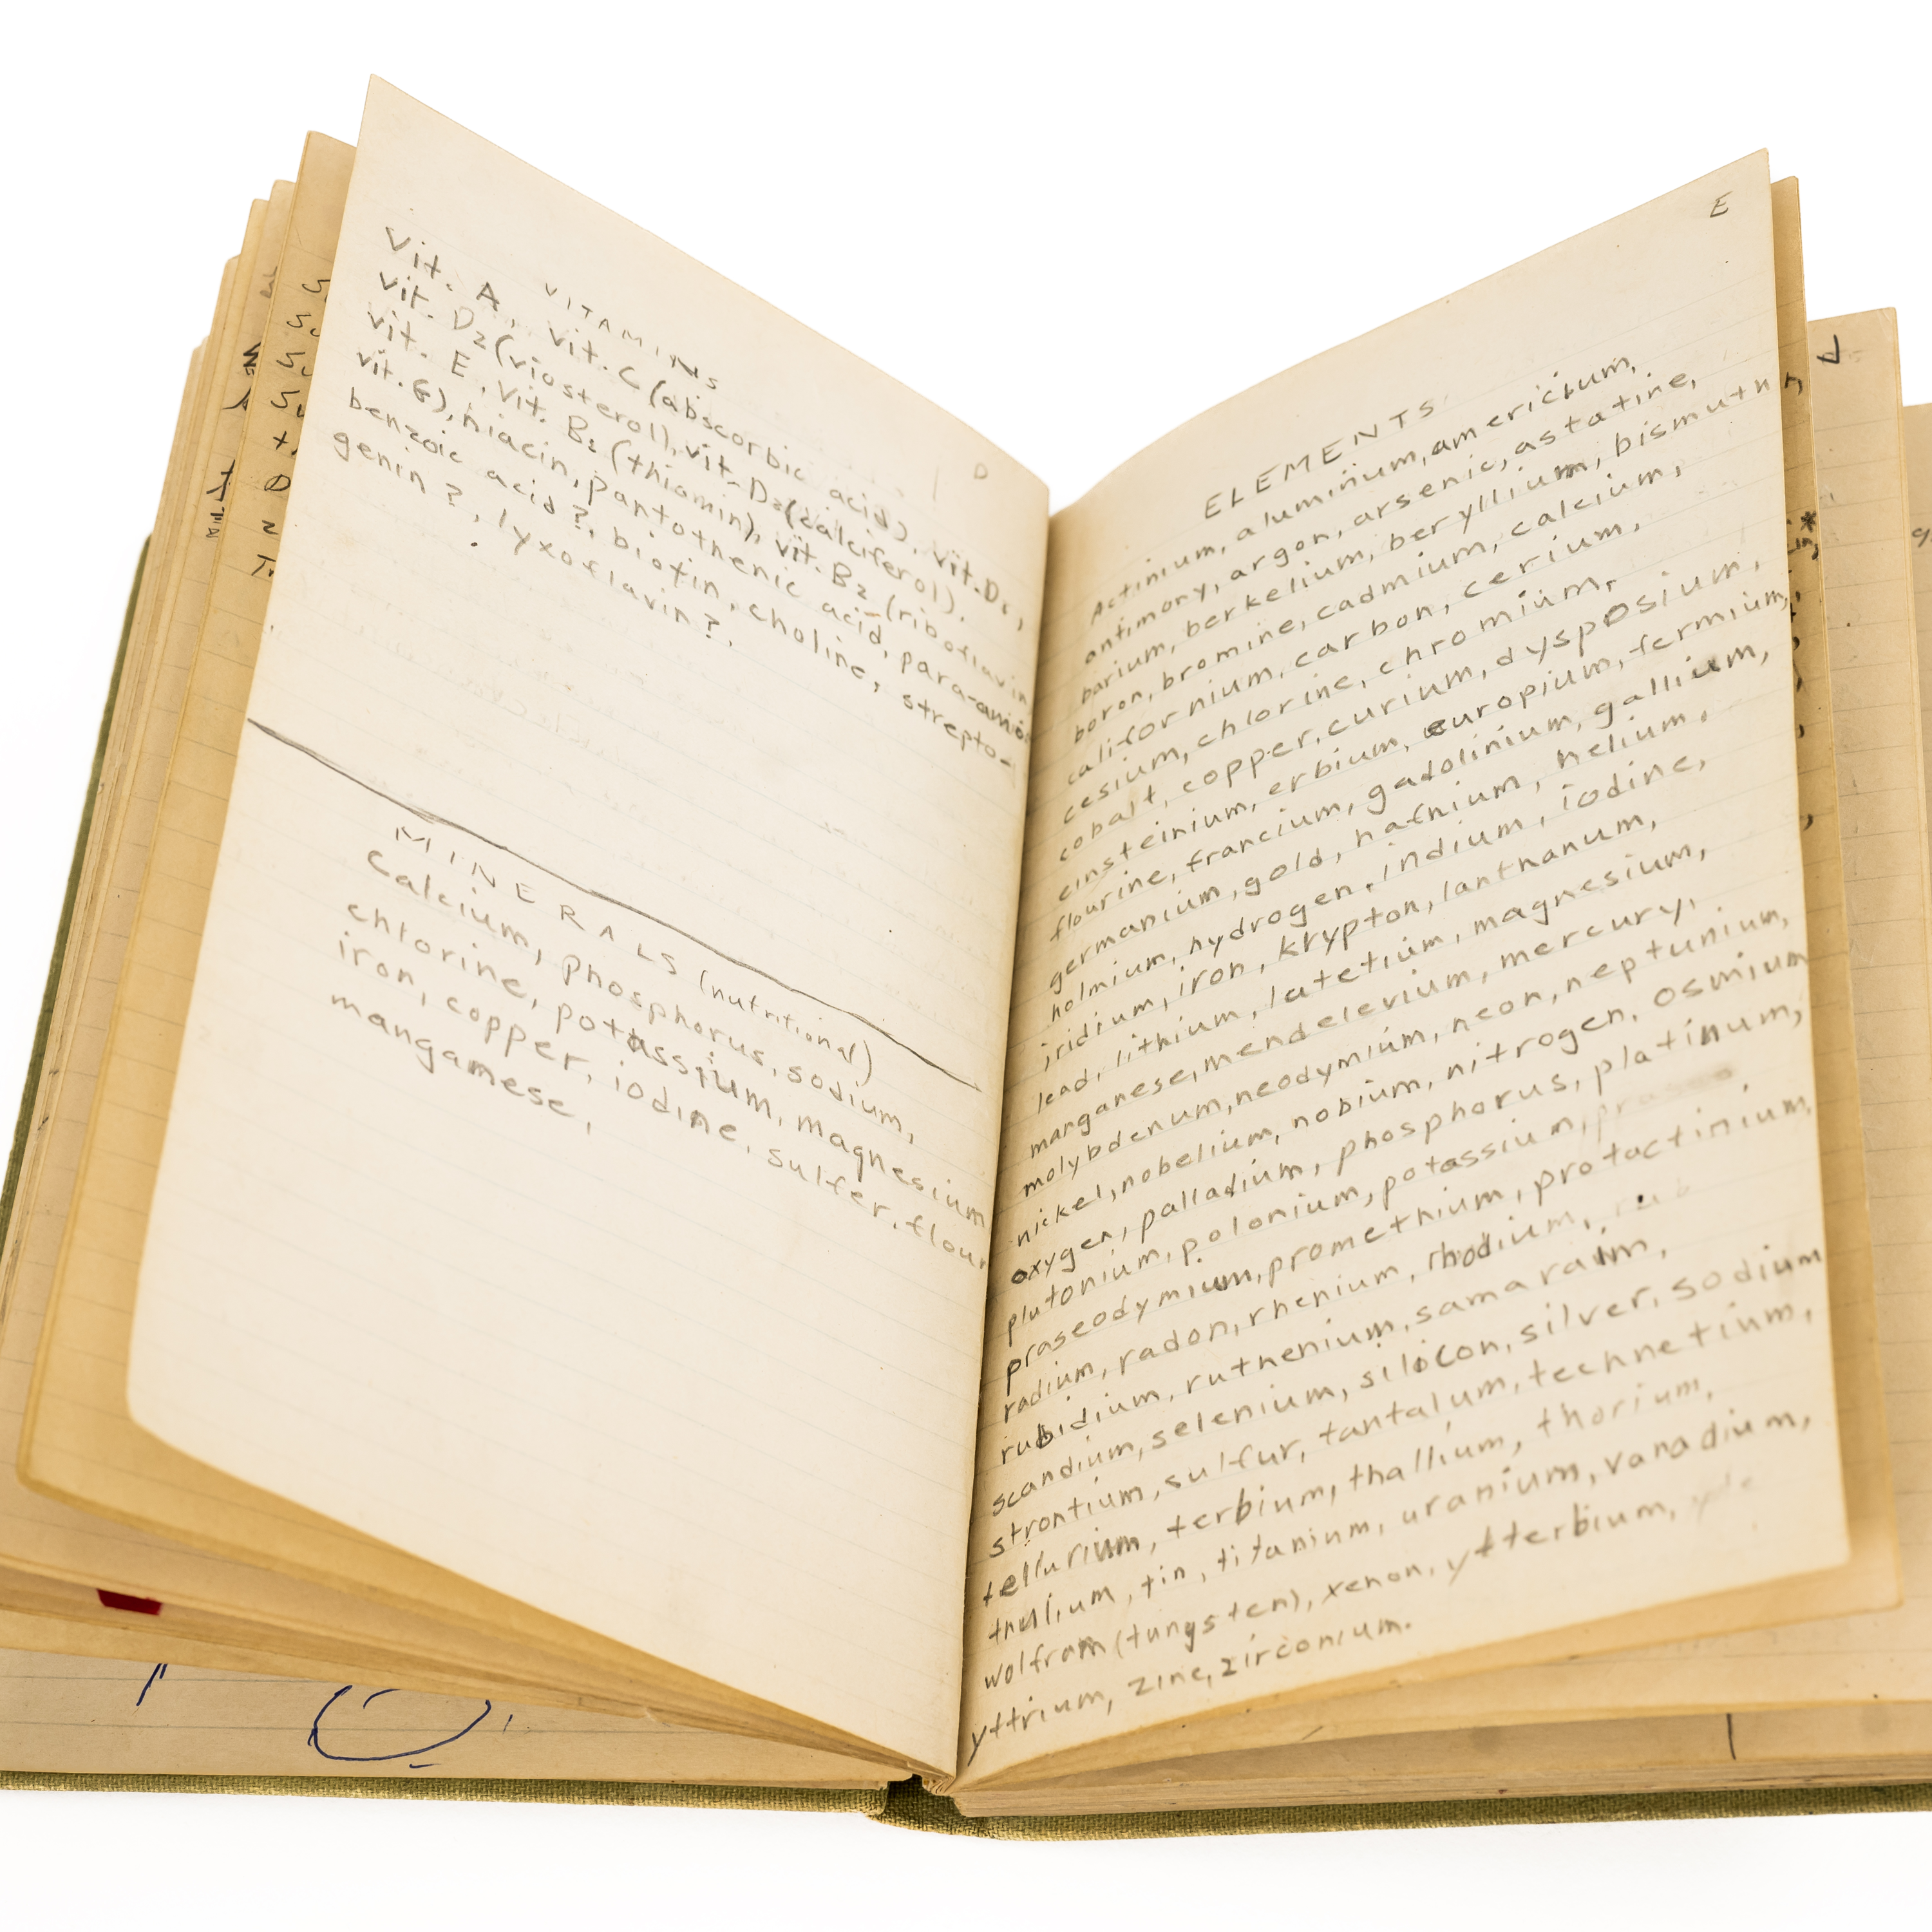 VITAMINS
Vit. A, Vit. C (abscorbic acid), Vit. D1,
Vit. D2 (viosterol), vit. D3 (calciferol),
Vit. E, Vit. B1 (thiamin), vit. B2 (riboflavin
vit. G), niacin, pantothenic acid, para-amino
benzoic acid?, biotin, choline, strepto-
genin?, lyxoflavin?,
MINERALS (nutritional)
Calcium, phosphorus, sodium,
chlorine, potassium, magnesium
iron, copper, iodine, sulfer, flour
mangamese,
D
E
ELEMENTS
Actinium, aluminium, americium,
antimony, argon, arsenic, astatine,
barium, berkelium, beryllium, bismuth,
boron, bromine, cadmium, calcium,
californium, carbon, cerium,
cesium, chlorine, chromium,
cobalt, copper, curium, dysposium,
einsteinium, erbium, europium, fermium,
flourine, francium, gadolinium, gallium,
germanium, gold, hafnium, helium,
holmium, hydrogen, indium, iodine,
iridium, iron, krypton, lanthanum,
lead, lithium, lutetium, magnesium,
manganese, mendelevium, mercury,
molybdenum, neodymium, neon, neptunium,
nickel, nobelium, nobium, nitrogen, osmium
oxygen, palladium, phosphorus, platinum,
plutonium, polonium, potassium,
praseodymium, promethium, protactinium,
radium, radon, rhenium, rhodium,
rubidium, ruthenium, samaraim,
scandium, selenium, silicon, silver, sodium
strontium, sulfur, tantalum, technetium,
tellurium, terbium, thallium, thorium,
thulium, tin, titanium, uranium, vanadium,
wolfram (tungsten), xenon, ytterbium,
yttrium, zinc, zirconium.
L